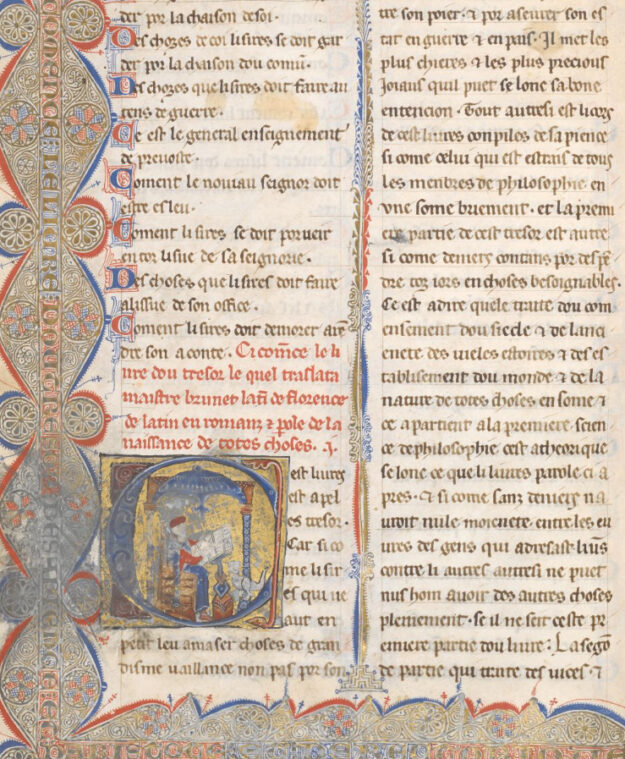 der por la chaison de soi.
Des chozes de coi li sires se doit gar
der por la chaison dou comū.
Des chozes que li sires doit faire au
tens de guerre.
Ce est le general enseignement
de prevoste.
Coment le nouiau seignor doit
estre esleu.
Coment li sires se doit porueir
entor lisue de sa seignorie.
Des choses que li sires doit faire
alissue de son office.
Coment li sires doit demorer
dre son aconte. Ci comēce le li
ure dou tresor le quel traslata
maistre brunet latī de florence
de latin en romanz ⁊ pole de la
naissance de totes choses.
Cest liures
est apel
es tresor.
Car si co
me li sir
es qui ue
aut en
petit leu amaser choses de gran
disme uaillance non pas por son
tre son poier. ⁊ por aseurer son es
tat en guerre ⁊ en pais. Il met les
plus chieres ⁊ les plus precious
joiaus quil puet se lone sa bone
entencion. Tout autresi est li cors
de cest liures conpiles de sapience
si come celui qui est estrais de tous
les menbres de philosophie en
vne some briement. et la premi
ere partie de cest tresor est autre
si come deniers contans por despē
dre toz iors en choses besoignables.
Ce est adire quele traite dou com
ensement dou siecle ⁊ de lanc
enete des uieles estoires ⁊ des es
tablisement dou monde ⁊ de la
nature de totes choses en some ⁊
ce apartient a la premiere scien
ce de philosophie cest a theorique
se lone ce que li liures parole ci a
pres. ⁊ si come sanz deniers na
uroit nule moienete entre les eu
ures des gens qui adresast luns
contre li autres autresi ne puet
nus hom auoir des autres choses
pleniement. se il ne seit ceste pr
emiere partie dou liure. La segō
de partie qui traite des uices. ⁊